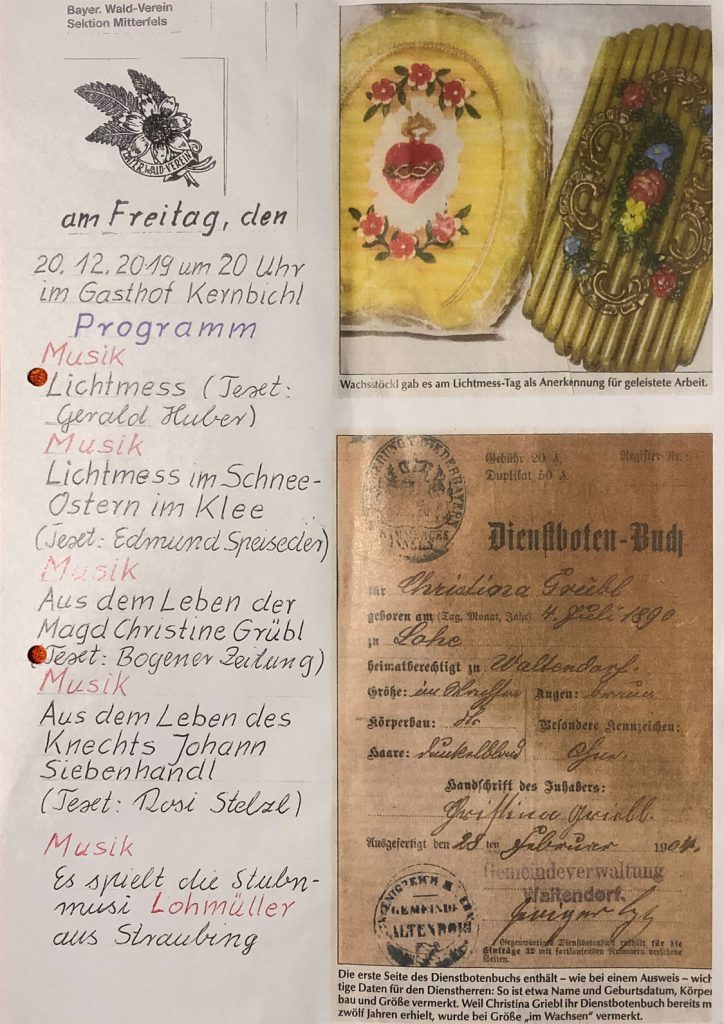 Bayer. Wald-Verein
Sektion Mitterfels
BAYER. WALD-VEREIN
am Freitag, den
20. 12. 2019 um 20 Uhr
im Gasthof Kernbichl
Programm
Musik
Lichtmess (Text:
Gerald Huber)
Musik
Lichtmess im Schnee-
Ostern im Klee
(Text: Edmund Speiseder)
Musik
Aus dem Leben der
Magd Christine Grübl
(Text: Bogener Zeitung)
Musik
Aus dem Leben des
Knechts Johann
Siebenhandl
(Text: Rosi Stelzl)
Musik
Es spielt die Stubn-
musi Lohmüller
aus Straubing
Wachsstöckl gab es am Lichtmess-Tag als Anerkennung für geleistete Arbeit.
Gebühr 20 ₰.
Duplikat 50 ₰.
Register Nr.:
Dienstboten-Buch
für Christina Grübl
geboren am (Tag, Monat, Jahr) 4. Juli 1890
zu Lohe
heimatberechtigt zu Waltendorf.
Größe: im Wachsen Augen: braun
Körperbau: Besondere Kennzeichen:
Haare: dunkelblond
Handschrift des Inhabers:
Christina Griebl.
Ausgefertigt den 28 ten Februar 1904.
Gemeindeverwaltung
Waltendorf.
GEMEINDE
Gegenwärtiges Dienstbotenbuch enthält für die
Einträge 32 mit fortlaufenden Nummern versehene
Seiten.
Die erste Seite des Dienstbotenbuchs enthält – wie bei einem Ausweis – wich
tige Daten für den Dienstherren: So ist etwa Name und Geburtsdatum, Körper
bau und Größe vermerkt. Weil Christina Griebl ihr Dienstbotenbuch bereits m
zwölf Jahren erhielt, wurde bei Größe „im Wachsen“ vermerkt.